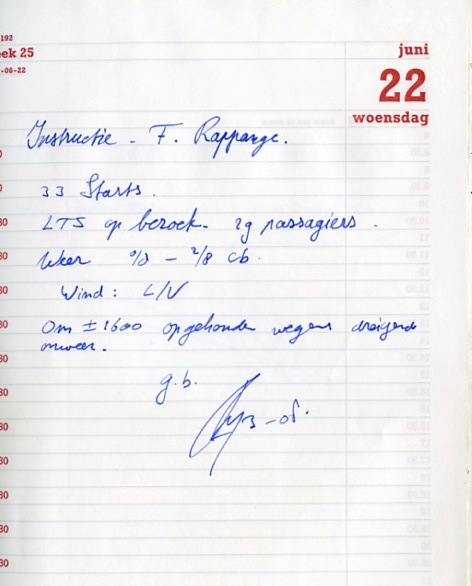 192
eek 25
-06-22
juni
22
woensdag
Instructie - F. Rappange.
33 Starts.
LTS op bezoek. 29 passagiers.
Weer 0/8 - 2/8 cb.
Wind: L/V
Om ± 1600 opgehouden wegens dreigend
onweer.
g.b.
30
30
30
30
30
30
30
30